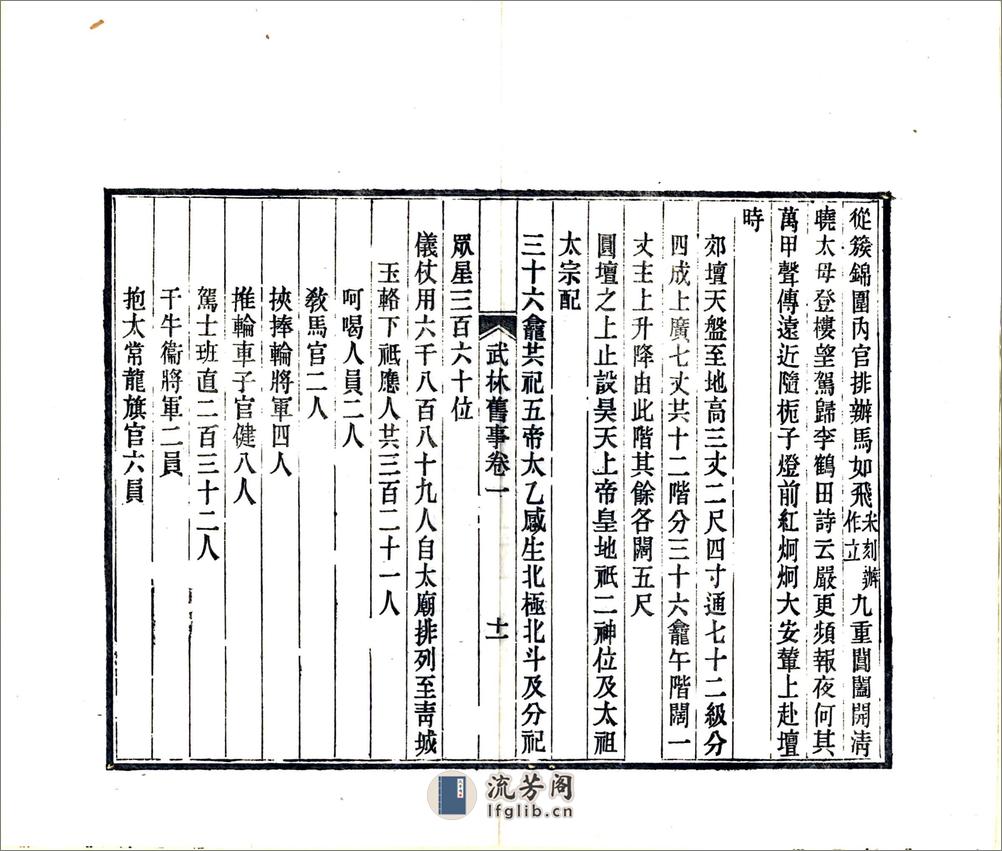 從簇錦圍內官排辦馬如飛宋刻辦作立九重閶闔開清
曉太母登樓望駕歸李鶴田詩云嚴更頻報夜何其
萬甲聲傳遠近隨栀子燈前紅炯炯大安輦上赴壇
時
郊壇天盤至地高三丈二尺四寸通七十二級分
四成上廣七丈共十二階分三十六龕午階闊一
丈主上升降由此階其餘各闊五尺
圓壇之上止設昊天上帝皇地祇二神位及太祖
太宗配
三十六龕共祀五帝太乙感生北極北斗及分祀
武林舊事卷一
十一
眾星三百六十位
儀仗用六千八百八十九人自太廟排列至靑城
玉輅下祇應人共三百二十一人
呵喝人員二人
敎馬官二人
挾捧輪將軍四人
推輪車子官健八人
駕士班直二百三十二人
千牛衞將軍二員
抱太常龍旗官六員
流芳阁
lfglib.cn